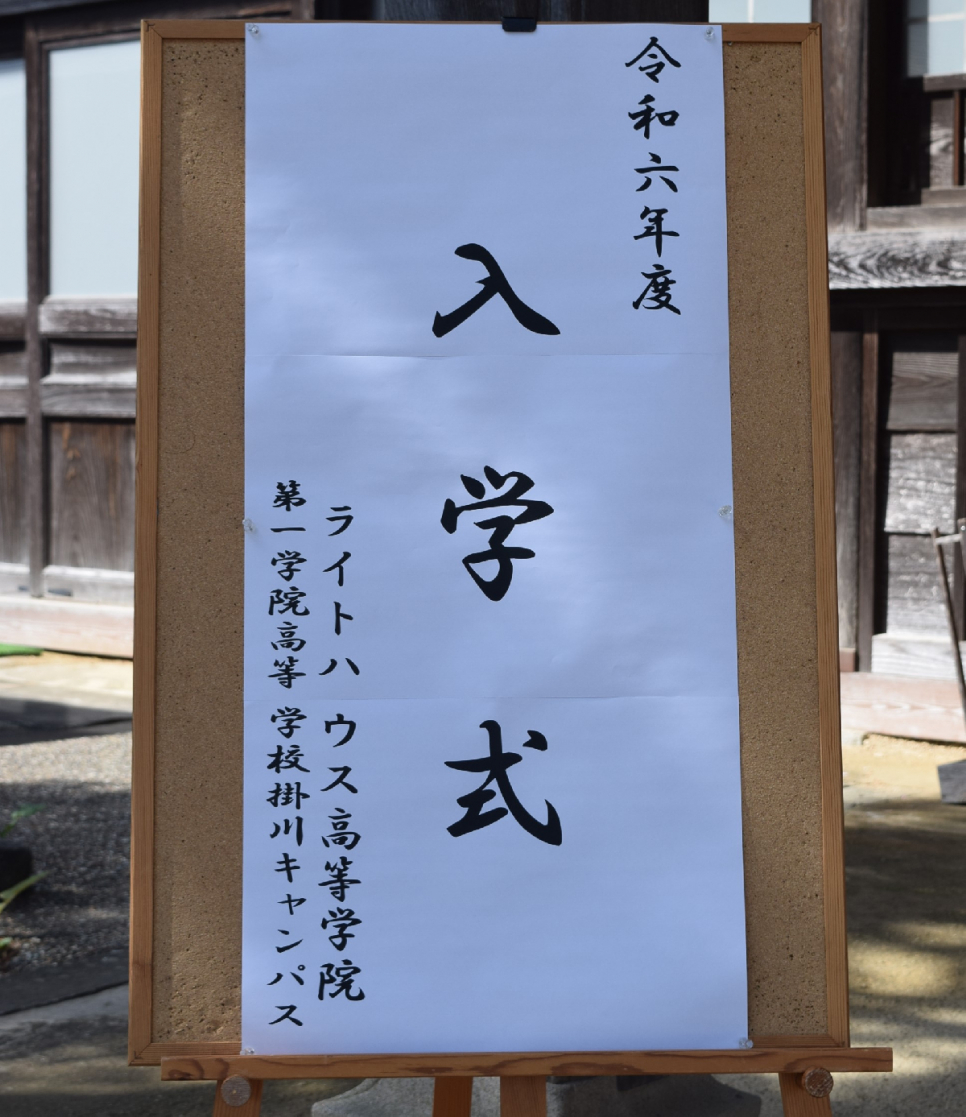 令和六年度
入学式
ライトハウス高等学院
第一学院高等学校掛川キャンパス